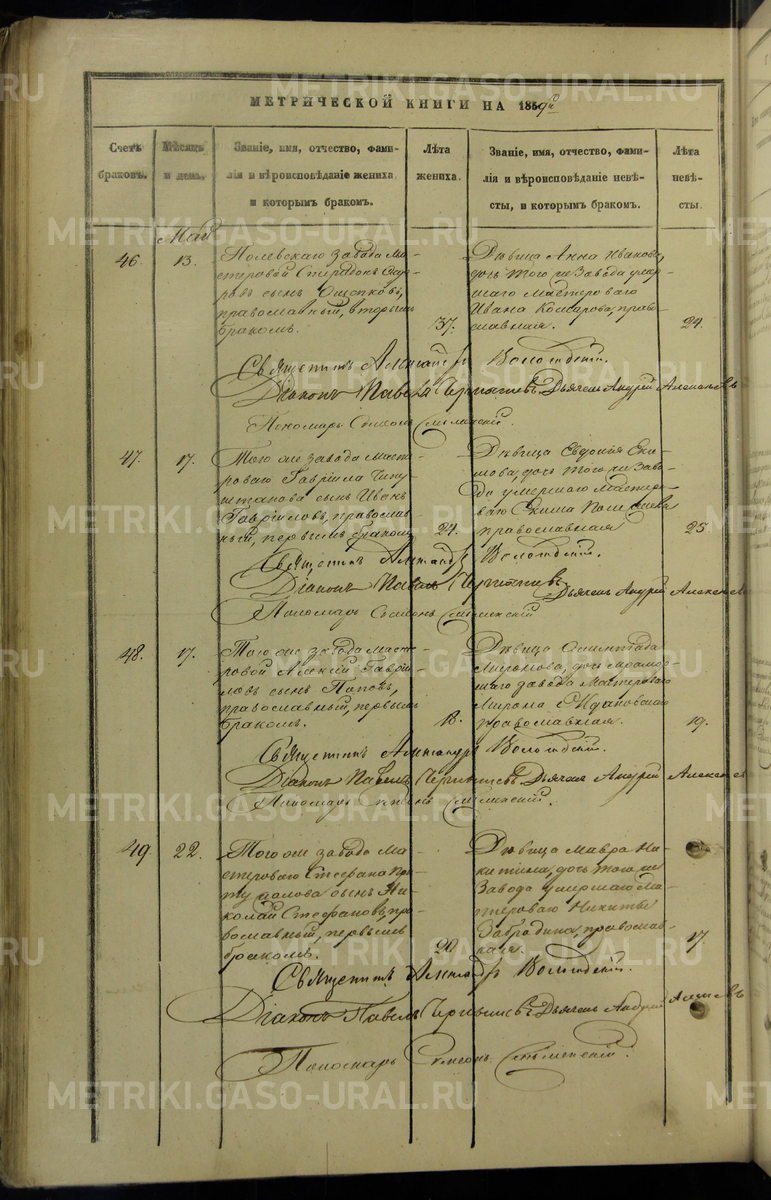 МЕТРИЧЕСКОЙ КНИГИ НА 1859й
Счетъ браковъ.
Мѣсяцъ и день.
Званіе, имя, отчество, фами-
лія и вѣроисповѣданіе жениха
и которымъ бракомъ.
Лѣта жениха.
Званіе, имя, отчество, фами-
лія и вѣроисповѣданіе невѣ-
сты, и которымъ бракомъ.
Лѣта невѣ-
сты.
Май
46. 13.
Полевскаго завода Ма-
стеровой Спиридонъ
сынъ
православный, вторымъ
бракомъ.
37.
Дѣвица Анна Иванова,
дочь того же Завода умер-
шаго Мастероваго
Ивана Комарова, право-
славная.
24.
Священникъ Александръ Вологодскій.
Діаконъ Павелъ Дьячекъ Андрей Алексѣевъ
Пономарь Симеонъ
47. 17.
Того же завода Масте-
роваго Гавріила
сынъ Иванъ
Гавріиловъ, православ-
ный, первымъ бракомъ
24.
Дѣвица Евдокія Еки-
мова, дочь того же Заво-
да умершаго Мастеро-
ваго Екима
православная
25.
Священникъ Александръ Вологодскій.
Діаконъ Павелъ
Дьячекъ Андрей Алексѣевъ
Пономарь Симеонъ
48. 17.
Того же завода Масте-
ровой Алексій Гаврі-
ловъ сынъ Поповъ,
православный, первымъ
бракомъ.
18.
Дѣвица
Миронова, дочь Мрамор-
наго завода Мастероваго
Мирона
православная.
19.
Священникъ Александръ Вологодскій.
Діаконъ Павелъ Дьячекъ Андрей Алексѣевъ
Пономарь Симеонъ
49. 22.
Того же завода Ма-
стероваго Стефана
сынъ Ни-
колай Стефановъ, пра-
вославный, первымъ
бракомъ.
20.
Дѣвица Мавра Ни-
китина, дочь того же
Завода умершаго Ма-
стероваго Никиты
православ-
ная.
17
Священникъ Александръ Вологодскій.
Діаконъ Павелъ Дьячекъ Андрей
Пономарь Симеонъ
METRIKI.GASO-URAL.RU